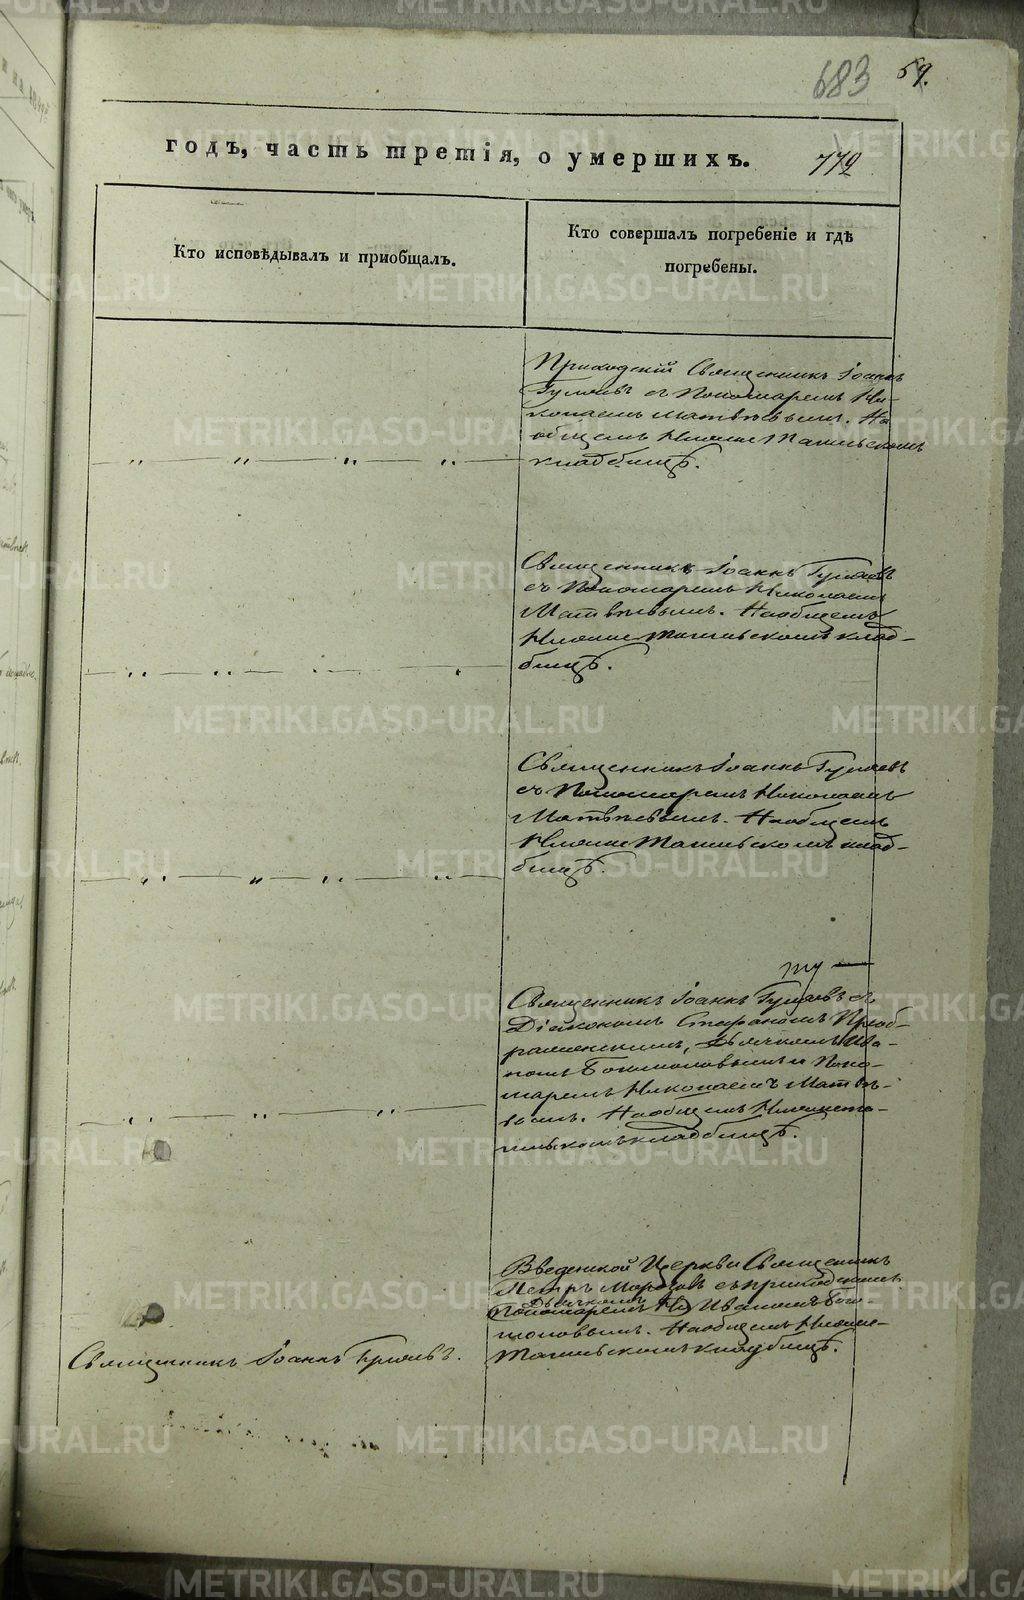 683 59.
годъ, часть третія, о умершихъ. 779
Кто исповѣдывалъ и приобщалъ.
Кто совершалъ погребеніе и гдѣ
погребены.
Приходскій Священникъ Іоаннъ
съ Пономаремъ Ни-
колаемъ Матвѣевымъ. На
общемъ Нижне Тагильскомъ
кладбищѣ.
Священникъ Іоаннъ
съ Пономаремъ Николаемъ
Матвѣевымъ. На общемъ
Нижне Тагильскомъ клад-
бищѣ.
Священникъ Іоаннъ
съ Пономаремъ Николаемъ
Матвѣевымъ. На общемъ
Нижне Тагильскомъ клад-
бищѣ.
Священникъ Іоаннъ съ
Діакономъ Стефаномъ Преоб-
раженскимъ, Дьячкомъ Ива-
номъ Богомоловымъ и Поно-
маремъ Николаемъ Матвѣ-
вымъ. На общемъ Нижнета-
гильскомъ кладбищѣ.
Введенской Церкви Священникъ
Петръ съ приходскимъ
Дьячкомъ
Пономаремъ Ни Иваномъ Бого-
моловымъ. На общемъ Нижне-
Тагильскомъ кладбищѣ.
Священникъ Іоаннъ
METRIKI.GASO-URAL.RU